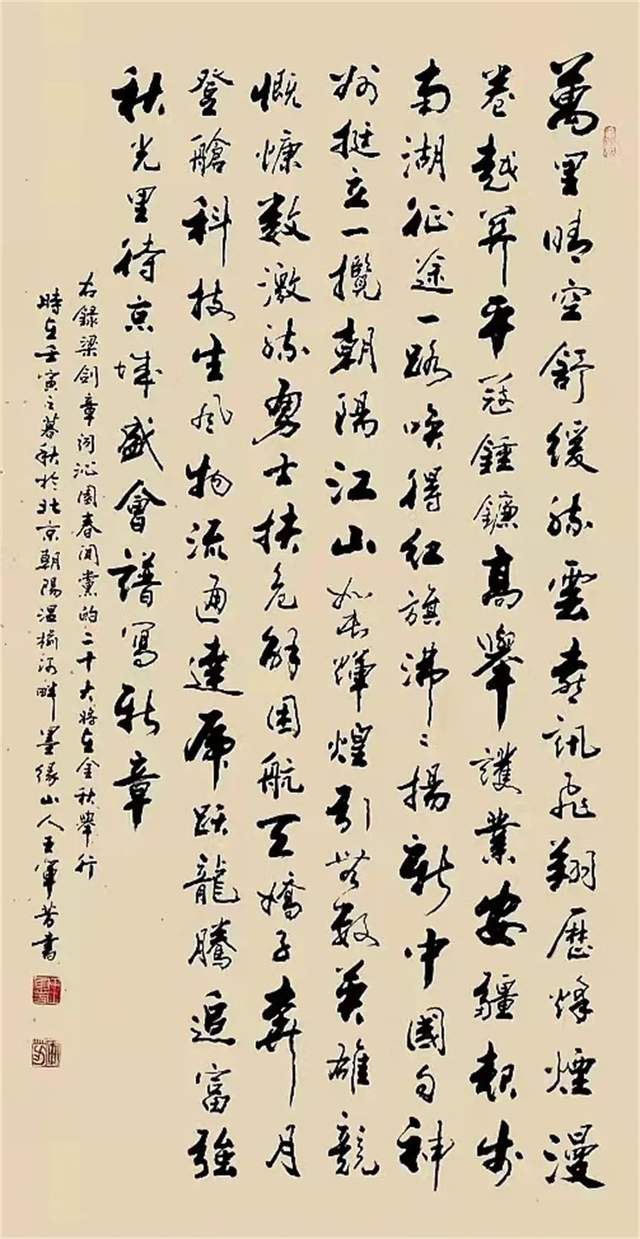 萬里晴空舒緩流雲喜訊飛翔歷烽煙漫
卷越關平寇錘鐮高舉護業安疆起步
南湖征途一路喚得紅旗沸沸揚新中國向神
州挺立一攬朝陽江山如此輝煌引無數英雄競
慨慷數激流勇士扶危解困航天嬌子奔月
登艙科技生風物流通達虎跃龍騰追富強
秋光里待京城盛會譜寫新章
右録梁劍章詞沁園春聞黨的二十大將在金秋舉行
時在壬寅之暮秋於北京朝陽溫榆河畔墨緣山人王軍芳書